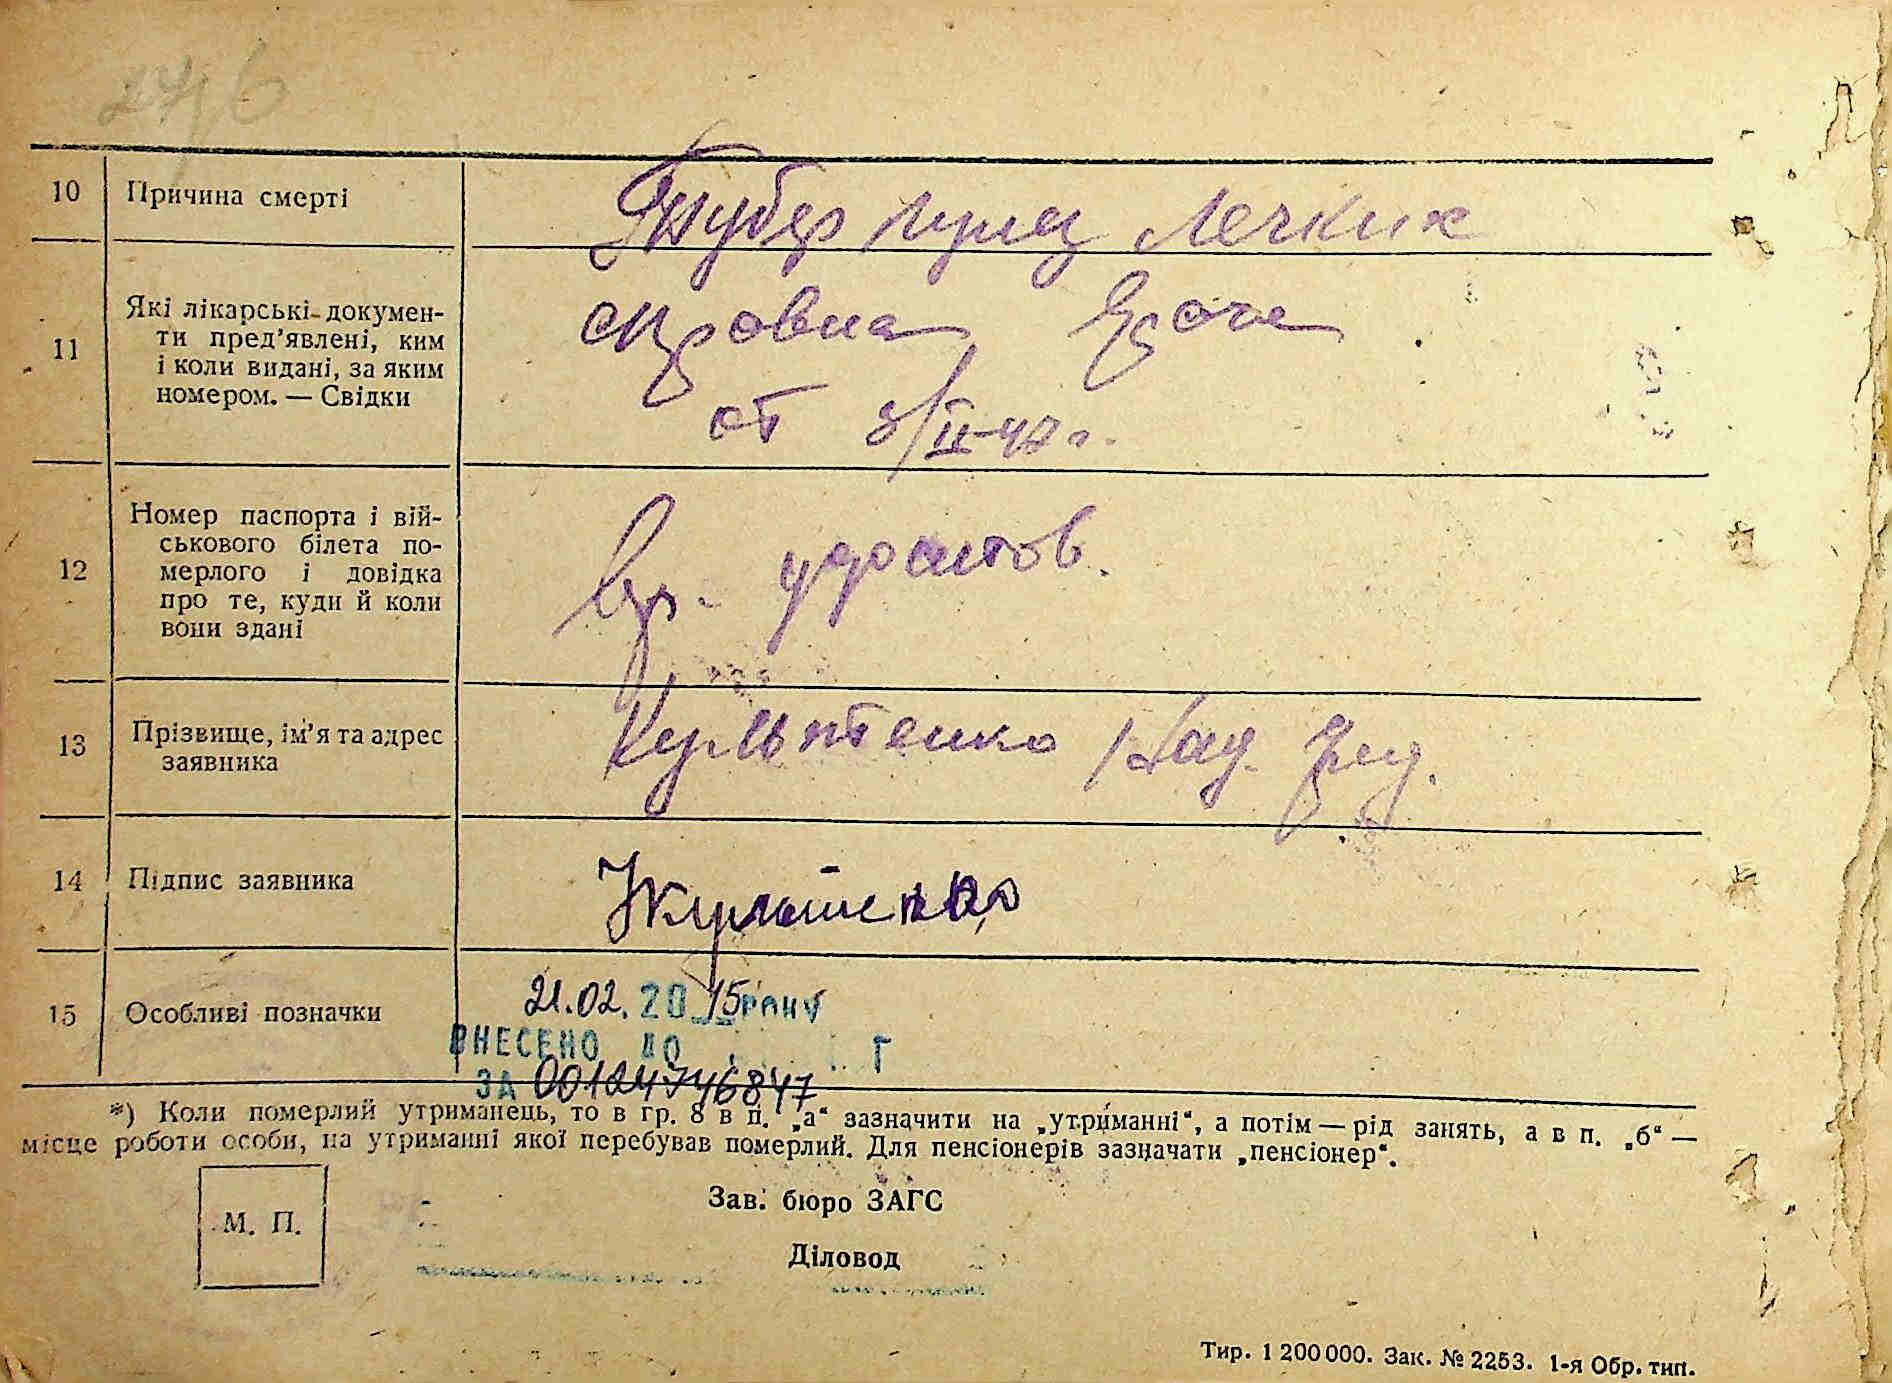 10 Причина смерті Тубер кулез Легких
11 Які лікарські документи пред'явлені, ким і коли видані, за яким номером. — Свідки
справка врача
от 3/II-47 г.
12 Номер паспорта і вій-
ськового білета по-
мерлого і довідка
про те, куди й коли
вони здані
Вр. удостов.
13 Прізвище, ім'я та адрес
заявника
14 Підпис заявника
15 Особливі позначки
21.02.2015 РОКУ
ВНЕСЕНО ДО
ЗА 00124746847
*) Коли померлий утриманець, то в гр. 8 в п. „а“ зазначити на „утриманні“, а потім — рід занять, а в п. „б“ —
місце роботи особи, на утриманні якої перебував померлий. Для пенсіонерів зазначати „пенсіонер“.
М. П.
Зав. бюро ЗАГС
Діловод
Тир. 1 200 000. Зак. № 2253. 1-я Обр. тип.